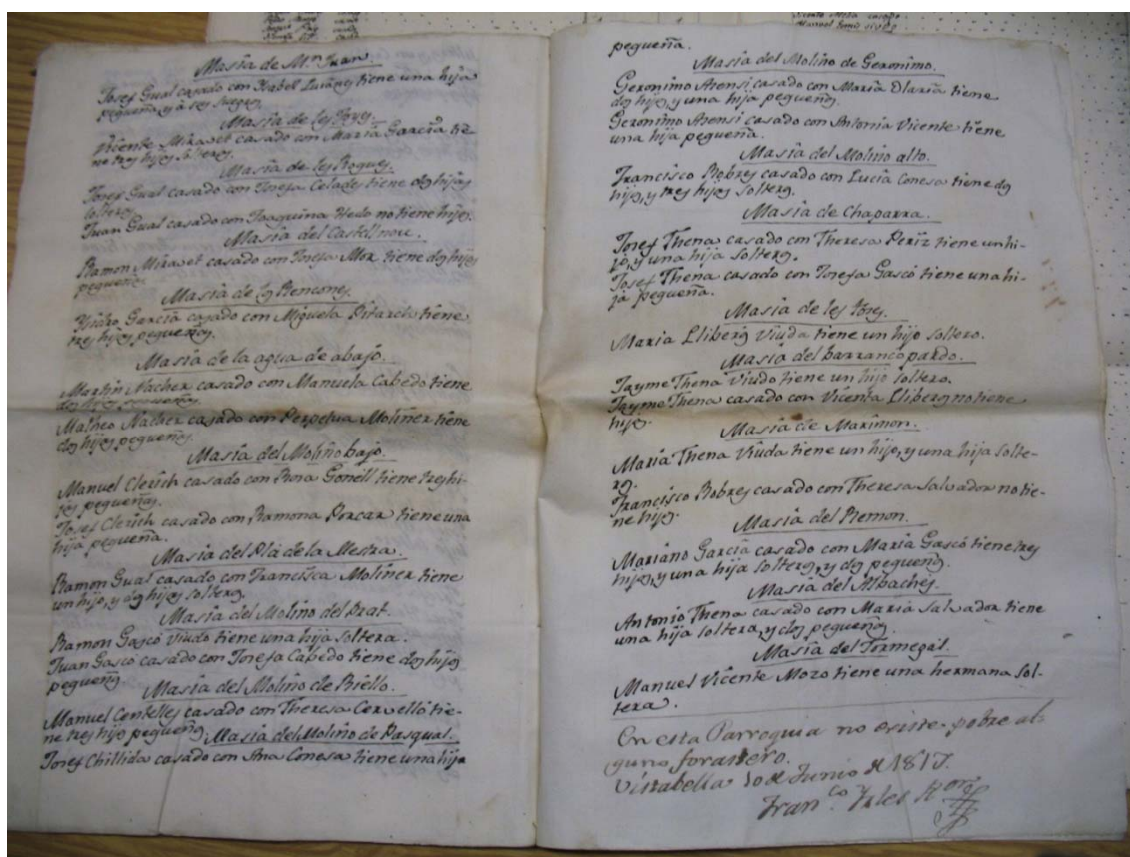 Masia de Mn. Juan.
Josef Gual casado con Isabel tiene una hija
pequeña, y á sus suegros.
Masia de les Foyes.
Vicente Miravet casado con Maria Garcia tie-
ne tres hijos solteros.
Masia de les Roques.
Josef Gual casado con Josefa Celades tiene dos hijos
solteros.
Juan Gual casado con Joaquina Hedo no tiene hijos.
Masia del Castellnou.
Ramon Miravet casado con Josefa Mor tiene dos hijos
pequeños.
Masia de los Rencones.
Ysidro Garcia casado con Miguela Pitarch tiene
tres hijos pequeños.
Masia de la agua de abajo.
Martin Nacher casado con Manuela Cabedo tiene
dos hijos pequeños.
Matheo Nacher casado con Perpetua Moliner tiene
dos hijos pequeños.
Masia del Molino bajo.
Manuel Clerich casado con Rosa Gonell tiene tres hi-
jos pequeños.
Josef Clerich casado con Ramona Porcar tiene una
hija pequeña.
Masia del Plá de la Mestra.
Ramon Gual casado con Francisca Moliner tiene
un hijo, y dos hijos solteros.
Masia del Molino del Prat.
Ramon Gascó Viudo tiene una hija soltera.
Juan Gascó casado con Josefa Cabedo tiene dos hijos
pequeños
Masia del Molino de Riello.
Manuel Centelles casado con Theresa Cervelló tie-
ne tres hijos pequeños.
Masia del Molino de Pasqual.
Josef Chillida casado con Ana Conesa tiene una hija
pequeña.
Masia del Molino de Geronimo.
Geronimo Asensi casado con Maria Olaria tiene
dos hijos, y una hija pequeños.
Geronimo Asensi casado con Antonia Vicente tiene
una hija pequeña.
Masia del Molino alto.
Francisco Robres casado con Lucia Conesa tiene dos
hijos, y tres hijos solteros.
Masia de Chaparra.
Josef Thena casado con Theresa Periz tiene un hi-
jo, y una hija solteros.
Josef Thena casado con Josefa Gascó tiene una hi-
ja pequeña.
Masia de les Tores.
Maria Lliberos Viuda tiene un hijo soltero.
Masia del barranco pardo.
Jayme Thena Viudo tiene un hijo soltero.
Jayme Thena casado con Vicenta Lliberos no tiene
hijos.
Masia de Marimon.
Maria Thena Viuda tiene un hijo, y una hija solte-
ros.
Francisco Robres casado con Theresa Salvador no tie-
ne hijos.
Masia del Remon.
Mariano Garcia casado con Maria Gascó tiene tres
hijos, y una hija solteros, y dos pequeños.
Masia del Albaches.
Antonio Thena casado con Maria Salvador tiene
una hija soltera, y dos pequeños.
Masia del Tormegal.
Manuel Vicente Mozo tiene una hermana sol-
tera.
En esta Parroquia no existe pobre al-
guno forastero.
Vistabella 10 de Junio de 1817.
Franco.